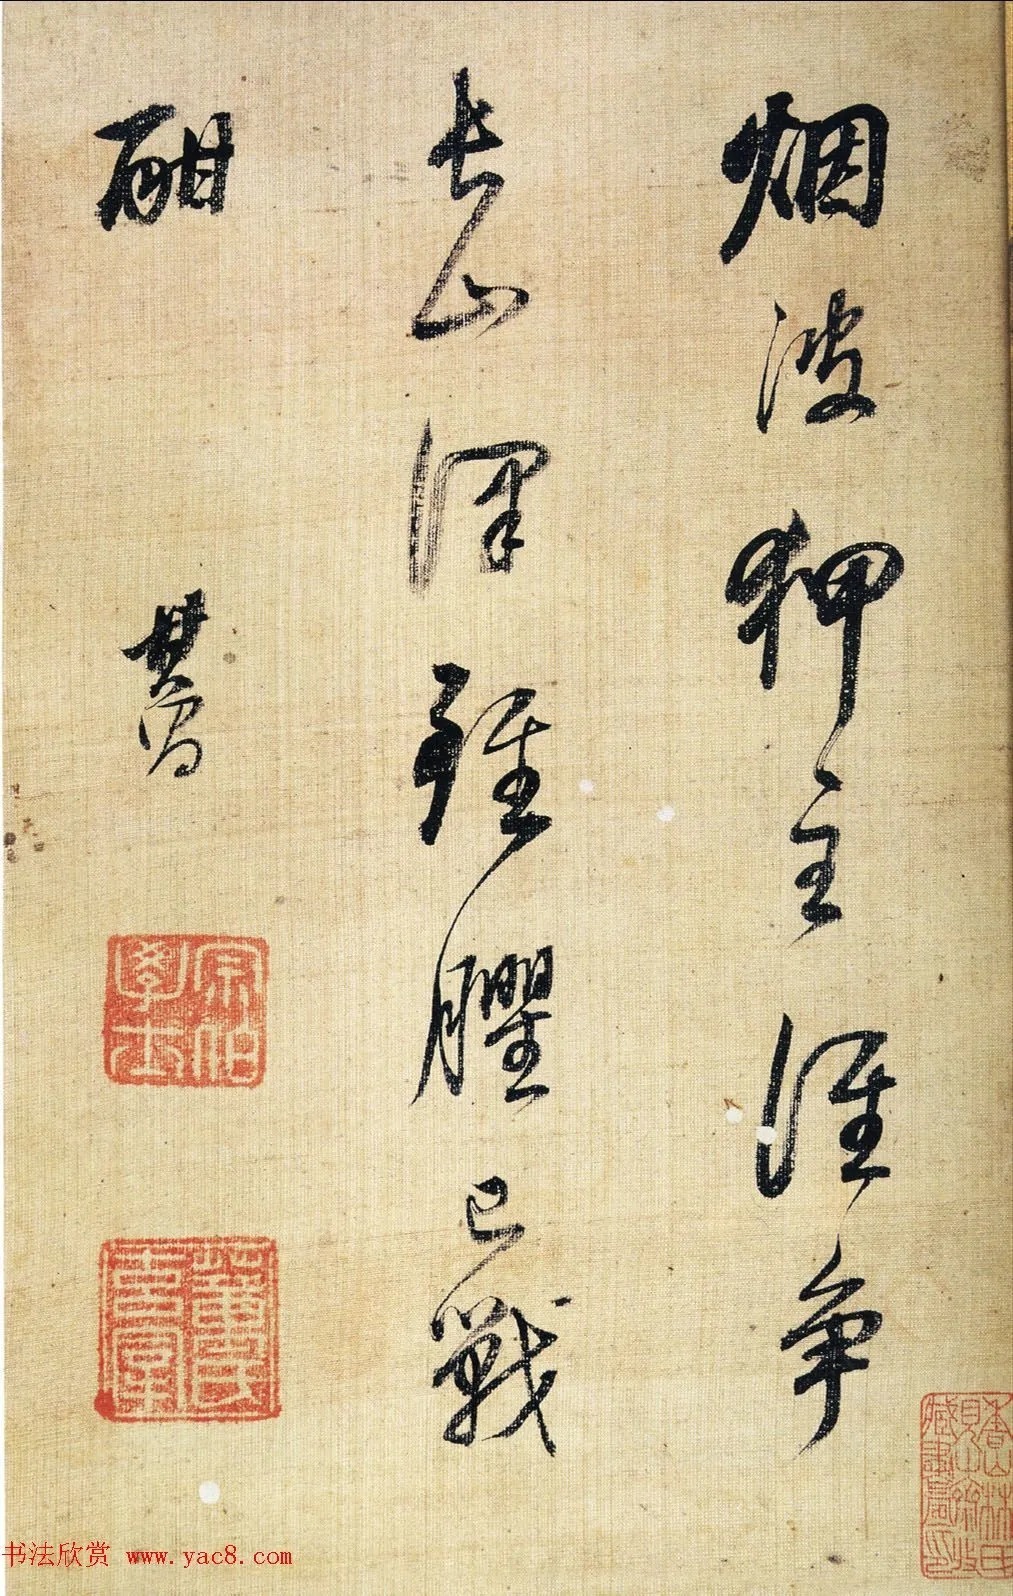 烟波狎主谁争
長山澤
已戰
酣
其昌
宗伯學士
董氏玄宰
书法欣赏 www.yac8.com